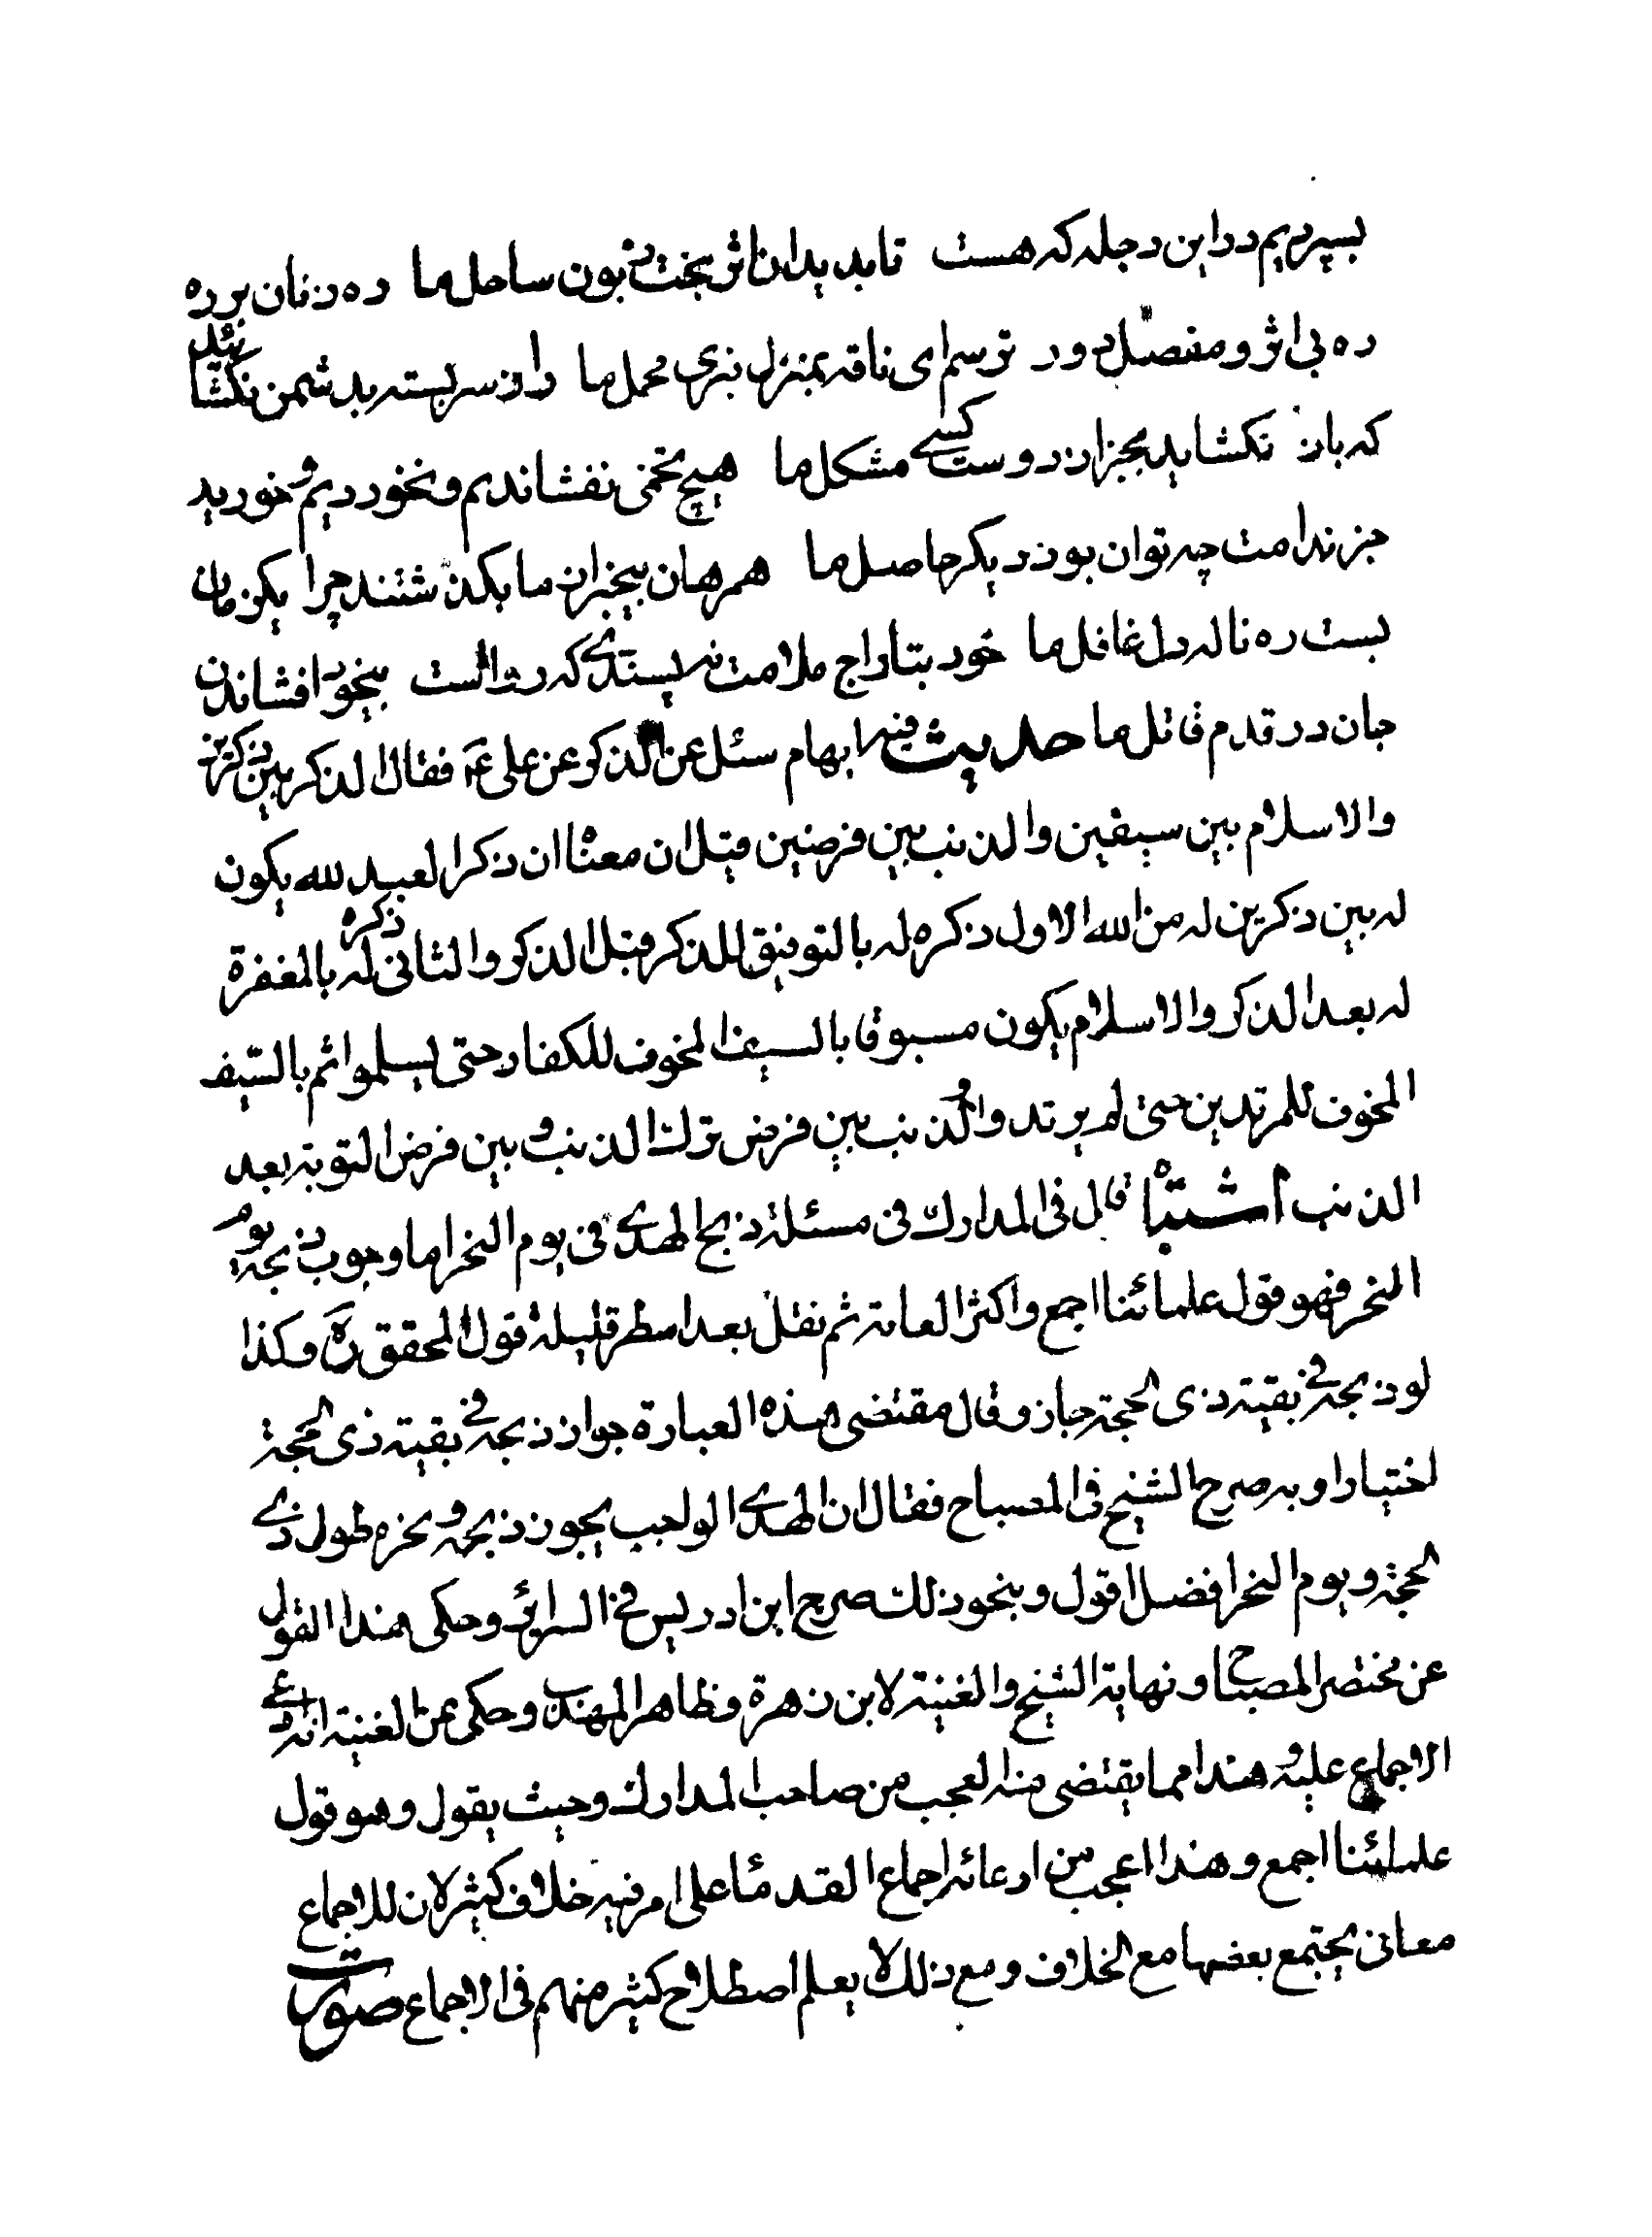 بسپردیم در این دجله که هست تا بدیدار اثر بخت زبون ساحل ما ره زنان بر ره
ره بی اثر و مقصد دور ترسم ای ناقه بمنزل نبری محمل ما راز سربسته بدشمن نکشائید
که باز نکشاید بجز از دوست کسی مشکل ما هیچ تخمی نفشاندیم و نخوردیم و خورید
جز ندامت چه توان بود دیگر حاصل ما همرهان بیخبر از ما بگذشتند چرا یکزمان
بست ره ناله دل غافل ما خود بتاراج ملامت نه پسندی که رواست بیخود افشاندن
جان در قدم قاتل ما حدیث فیه ابهام سئل عن الذکر عن علی ع فقال الذکر بین ذکرین
والاسلام بین سیفین والذنب بین فرضین قیل ان معناا ان ذکر العبد لله یکون
له بین ذکرین له من الله الاول ذکره له بالتوفیق للذکر قبل الذکر والثانی ذکره له بالمغفرة
له بعد الذکر والاسلام یکون مسبوقا بالسیف المخوف للکفار حتی یسلموا ثم بالسیف
المخوف للمرتدین حتی لم یرتدوا والذنب بین فرض ترک الذنب و بین فرض التوبة بعد
الذنب اشتباه قال فی المدارک فی مسئلة ذبح الهدی فی یوم النحر اما وجوب ذبحه یوم
النحر فهو قول علمائنا اجمع واکثر العامة ثم نقل بعد اسطر قلیلة قول المحقق ره وکذا
لو ذبحه فی بقیة ذی الحجة جاز وقال مقتضی هذه العبارة جواز ذبحه فی بقیة ذی الحجة
اختیارا و به صرح الشیخ فی المصباح فقال ان الهدی الواجب یجوز ذبحه ونحره طول ذی
الحجة ویوم النحر افضل اقول وبنحو ذلک صرح ابن ادریس فی السرائر وحکی هذا القول
عن مختصر المصباح ونهایة الشیخ والغنیة لابن زهرة وظاهر المهذب وحکی عن الغنیة انه ادعی
الاجماع علیه وهذا مما یقتضی منه العجب من صاحب المدارک وحیث یقول وهو قول
علمائنا اجمع وهذا اعجب من ادعائه اجماع القدماء علی امر فیه خلاف کثیر لان للاجماع
معانی یجتمع بعضها مع الخلاف ومع ذلک لا یعلم اصطلاح کثیر منهم فی الاجماع صورت